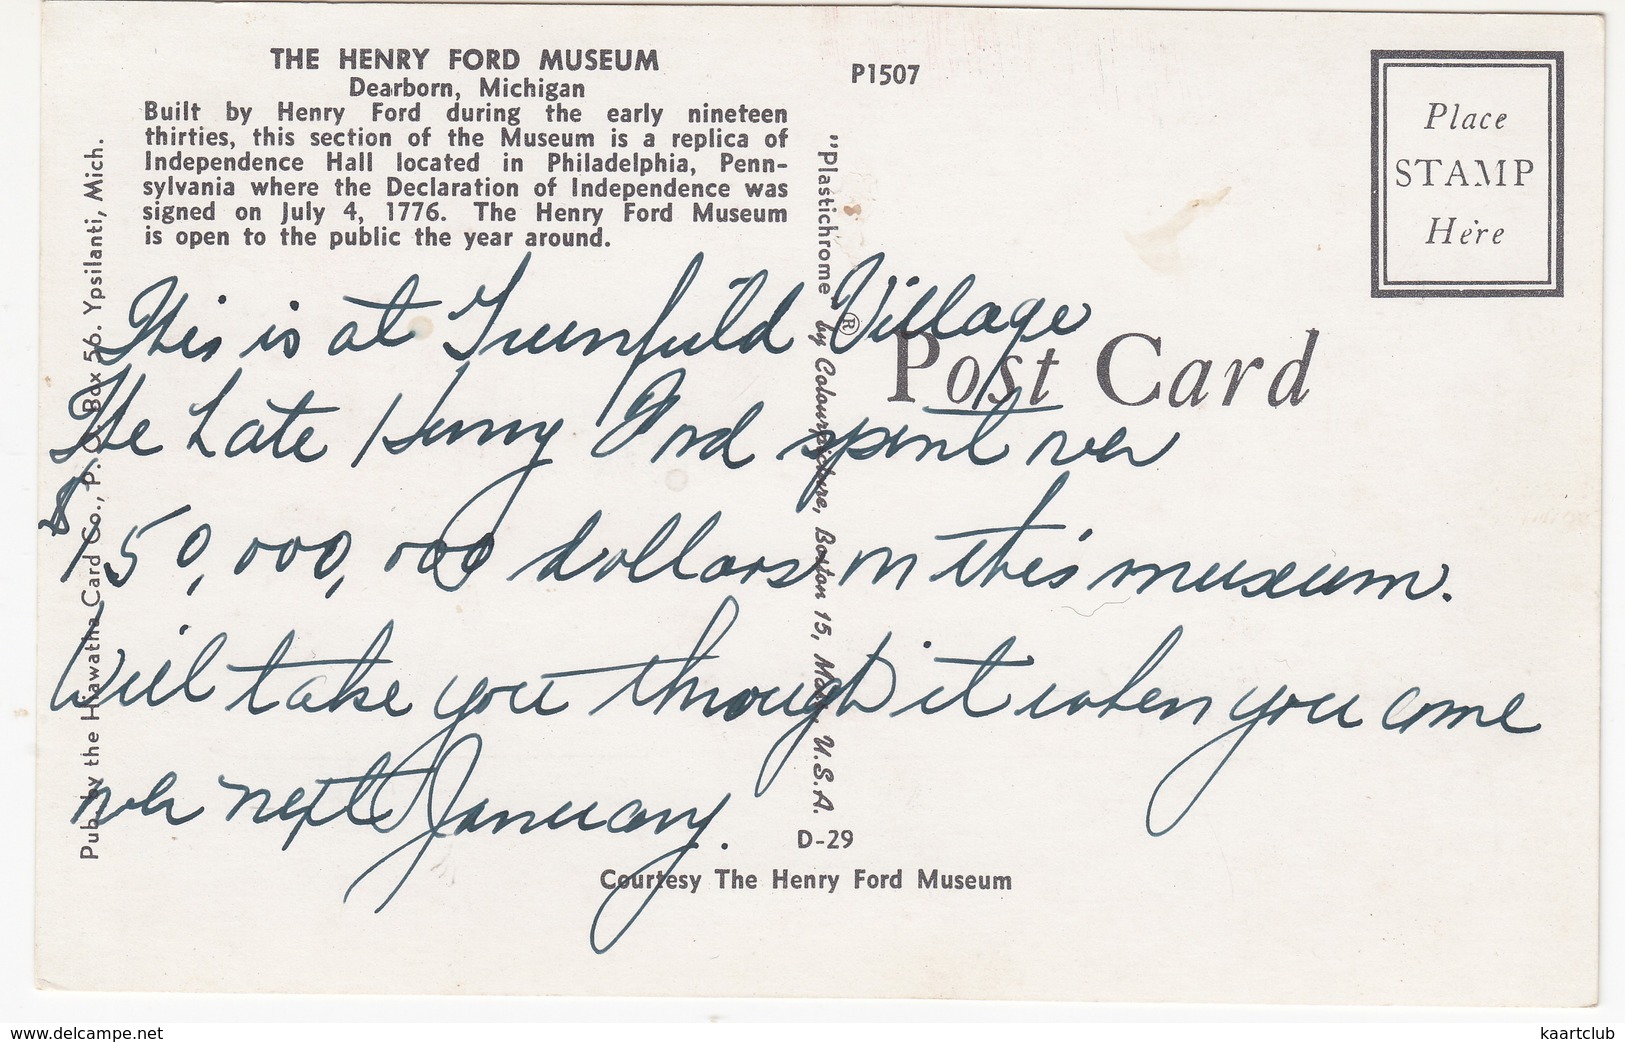 THE HENRY FORD MUSEUM
Dearborn, Michigan
Built by Henry Ford during the early nineteen
thirties, this section of the Museum is a replica of
Independence Hall located in Philadelphia, Penn-
sylvania where the Declaration of Independence was
signed on July 4, 1776. The Henry Ford Museum
is open to the public the year around.
P1507
Place
STAMP
Here
Post Card
Pub. by the Hiawatha Card Co., P. O. Box 56. Ypsilanti, Mich.
"Plastichrome" ® by Colourpicture, Boston 15, Mass., U.S.A.
This is at Greenfield Village
The Late Henry Ford spent over
$150,000,000 dollars on this museum.
Will take you through it when you come
over next January.
D-29
Courtesy The Henry Ford Museum
www.delcampe.net
kaartclub